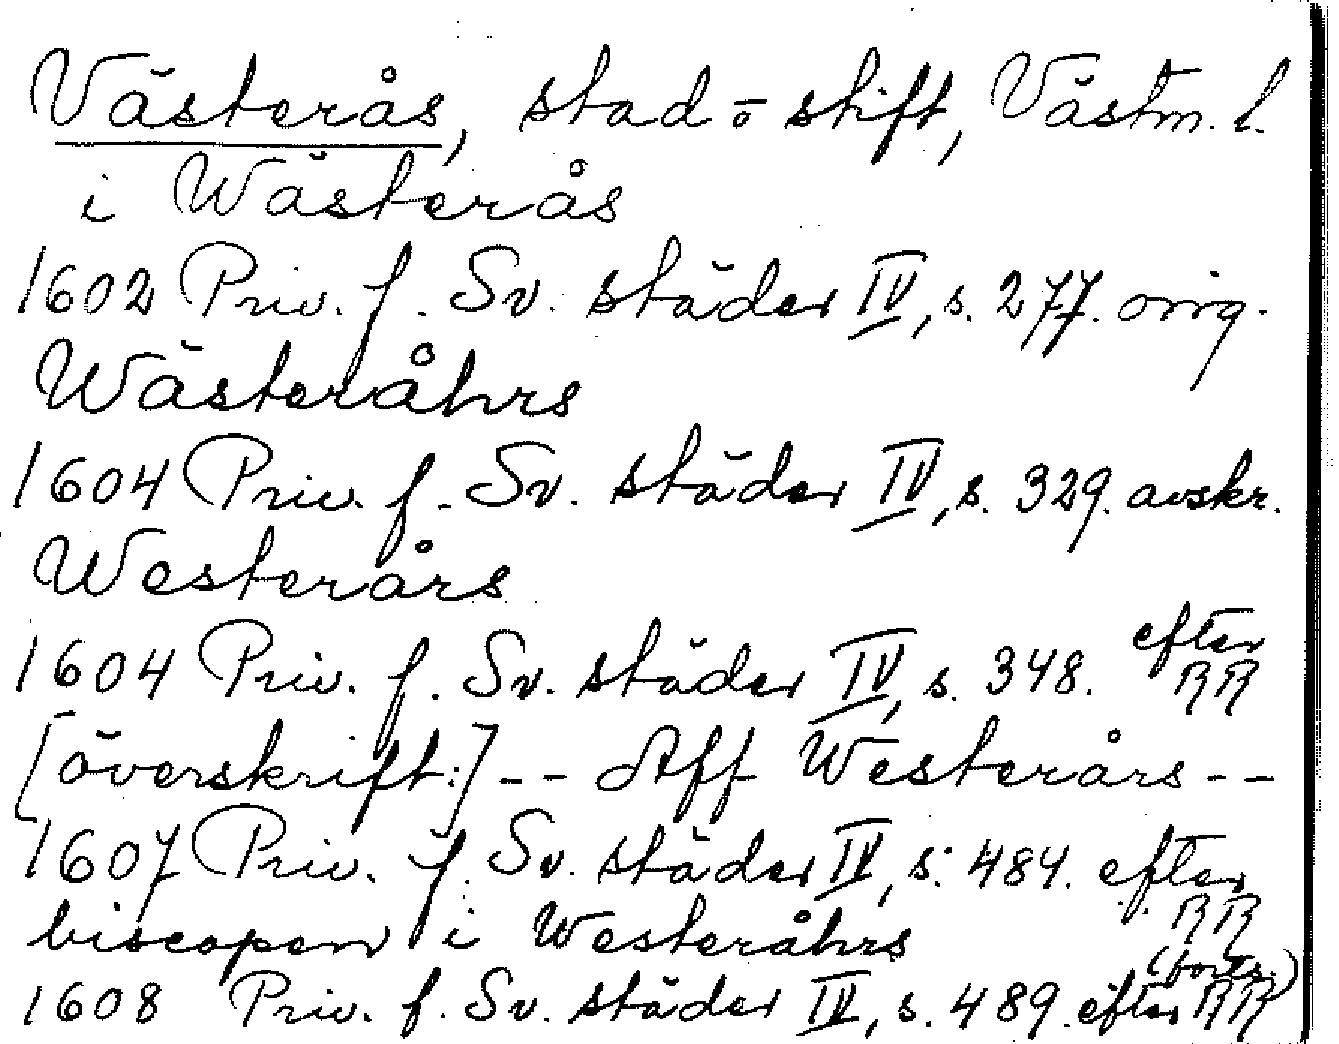 Västerås, stad o stift, Västm. l.
i Wästerås
1602 Priv. f. Sv. städer IV, s. 277. orig.
Wästeråhrs
1604 Priv. f. Sv. städer IV, s. 329. avskr.
Westerårs
1604 Priv. f. Sv. städer IV, s. 348. efter RR
[överskrift:] -- Aff Westerårs --
1607 Priv. f. Sv. städer IV, s. 484. efter RR
biscopen i Westeråhrs
(forts.)
1608 Priv. f. Sv. städer IV, s. 489. efter RR